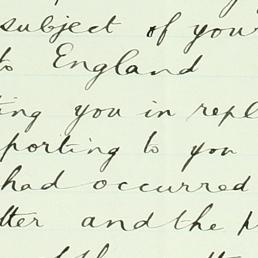 subject of your
to England
ting you in repl
porting to you
had occurred
tter and the p